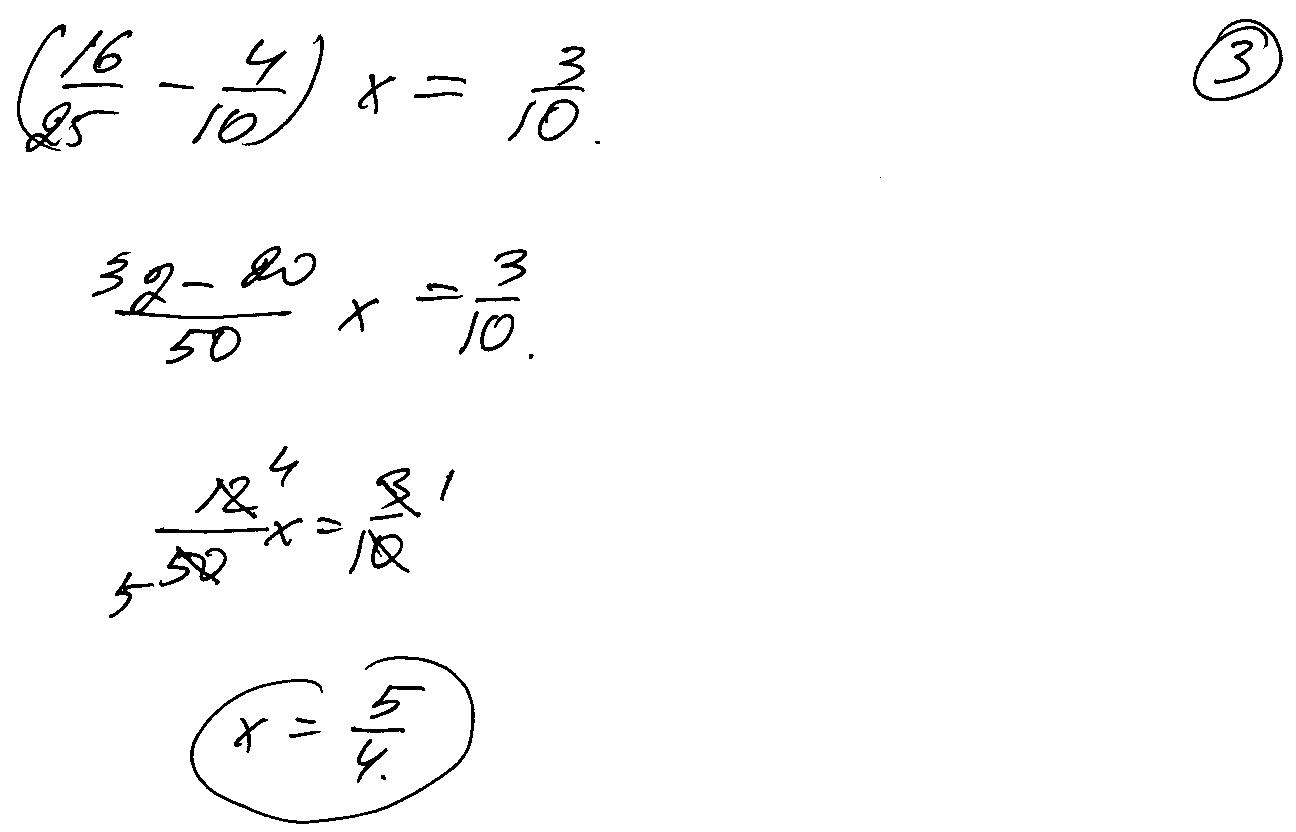 (16/25 - 4/10) x = 3/10. ③
32 - 20/50 x = 3/10.
12 4/5 50 x = 3 1/10
x = 5/4.